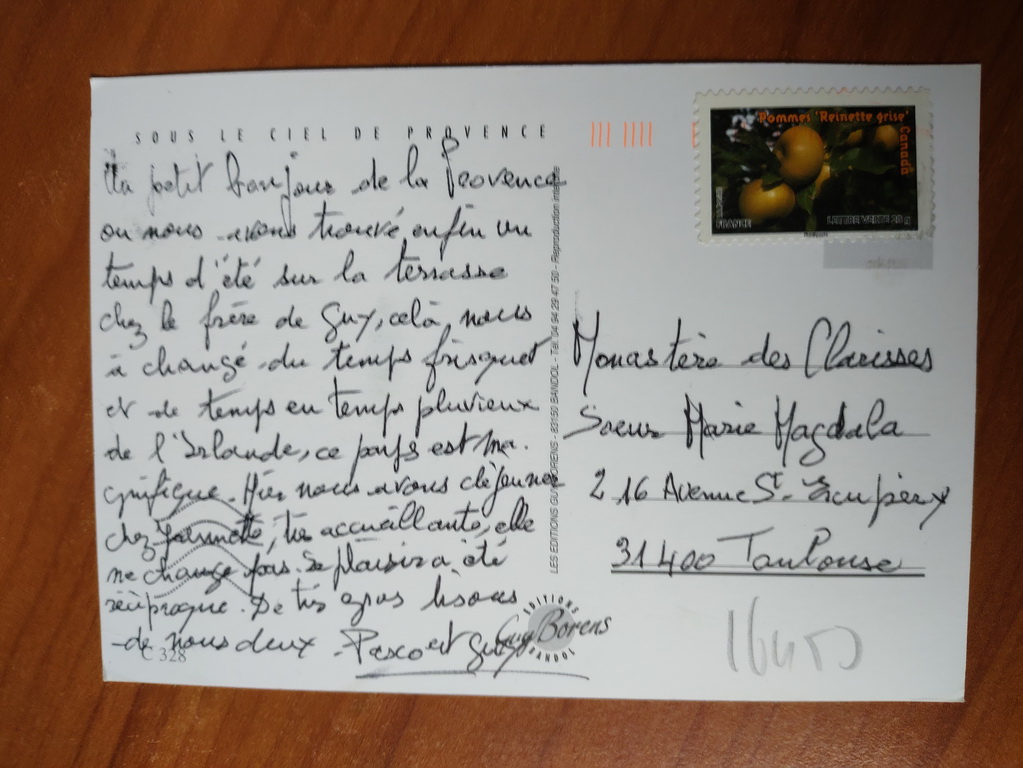 SOUS LE CIEL DE PROVENCE
Un petit bonjour de la Provence
ou nous avons trouvé enfin un
temps d'été sur la terrasse
chez le frère de Guy, celà nous
à changé du temps frisquet
et de temps en temps pluvieux
de l'Irlande, ce pays est ma-
gnifique. Hier nous avons déjeuner
chez, très accueillante, elle
ne change pas. Le plaisir a été
réciproque. De très gros bisous
de nous deux - et Guy
C 328
LES EDITIONS GUY BORENS - 83150 BANDOL - Tél. 04 94 29 47 50 - Reproduction interdite
EDITIONS
Guy Borens
BANDOL
Pommes 'Reinette grise'
Canada
FRANCE
LETTRE VERTE 20 g
Monastère des Clarisses
Soeur Marie Magdala
216 Avenue St-Exupéry
31400 Toulouse